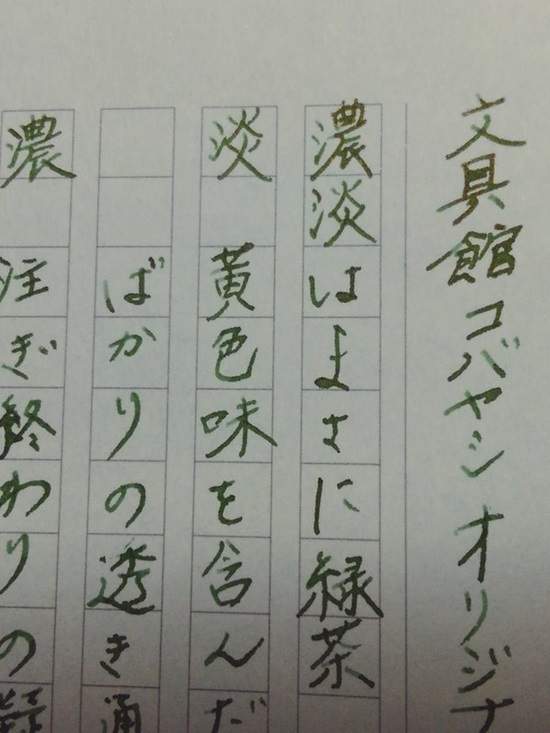 文具館コバヤシオリジナ
濃淡はまさに緑茶
淡 黄色味を含んだ
ばかりの透き通
濃 注ぎ終わりの